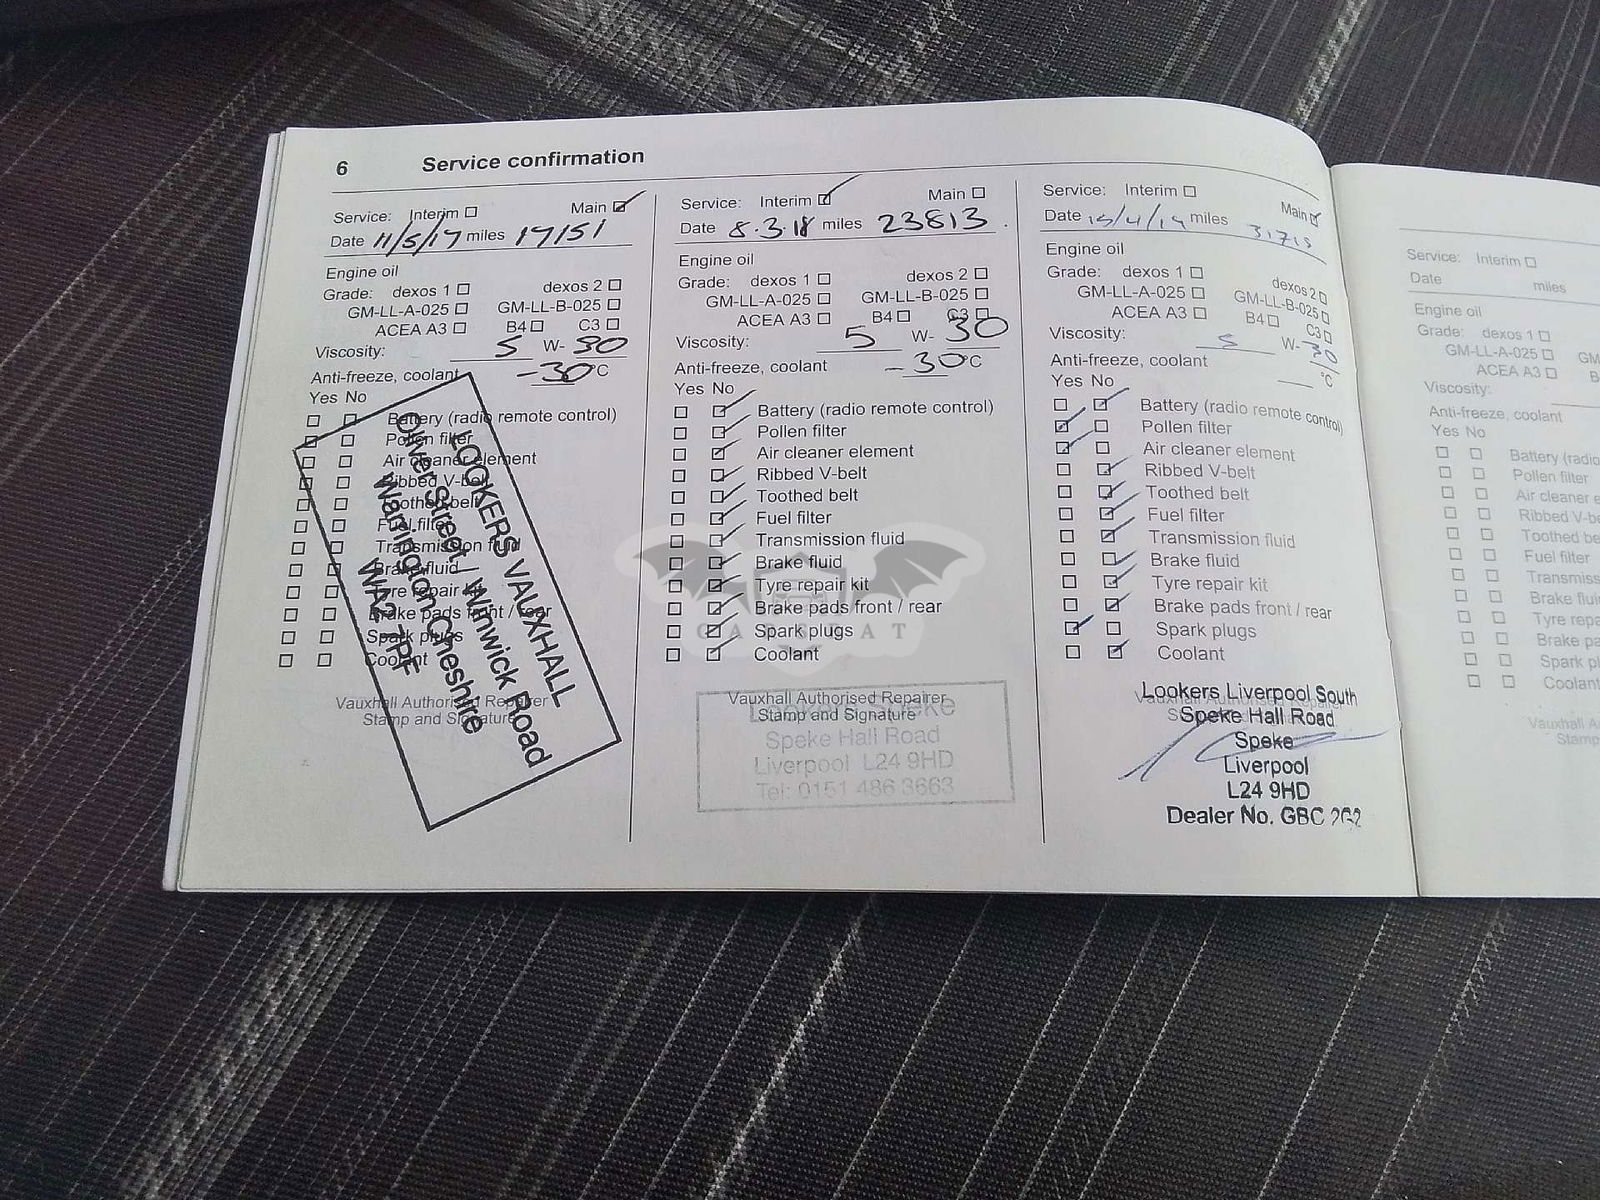 6 Service confirmation
Service: Interim Main
Date 11/5/17 miles 17151
Engine oil
Grade: dexos 1 dexos 2
GM-LL-A-025 GM-LL-B-025
ACEA A3 B4 C3
Viscosity: 5 W- 30
Anti-freeze, coolant -30°C
Yes No
Battery (radio remote control)
Pollen filter
Air cleaner element
Ribbed V-belt
Toothed belt
Fuel filter
Transmission fluid
Brake fluid
Tyre repair kit
Brake pads front / rear
Spark plugs
Coolant
Vauxhall Authorised Repairer
Stamp and Signature
LOOKERS VAUXHALL
Oliver Street / Winwick Road
Warrington Cheshire
WA2 7PF
Service: Interim Main
Date 8.3.18 miles 23813
Engine oil
Grade: dexos 1 dexos 2
GM-LL-A-025 GM-LL-B-025
ACEA A3 B4 C3
Viscosity: 5 W- 30
Anti-freeze, coolant -30°C
Yes No
Battery (radio remote control)
Pollen filter
Air cleaner element
Ribbed V-belt
Toothed belt
Fuel filter
Transmission fluid
Brake fluid
Tyre repair kit
Brake pads front / rear
Spark plugs
Coolant
Vauxhall Authorised Repairer
Stamp and Signature
Lookers Speke
Speke Hall Road
Liverpool L24 9HD
Tel: 0151 486 3663
Service: Interim Main
Date 15/4/19 miles 31715
Engine oil
Grade: dexos 1 dexos 2
GM-LL-A-025 GM-LL-B-025
ACEA A3 B4 C3
Viscosity: 5 W- 30
Anti-freeze, coolant °C
Yes No
Battery (radio remote control)
Pollen filter
Air cleaner element
Ribbed V-belt
Toothed belt
Fuel filter
Transmission fluid
Brake fluid
Tyre repair kit
Brake pads front / rear
Spark plugs
Coolant
Vauxhall Authorised Repairer
Lookers Liverpool South
Speke Hall Road
Speke
Liverpool
L24 9HD
Dealer No. GBC 2G2
Service: Interim
Date miles
Engine oil
Grade: dexos 1
GM-LL-A-025 GM
ACEA A3 B
Viscosity:
Anti-freeze, coolant
Yes No
Battery (radio
Pollen filter
Air cleaner e
Ribbed V-be
Toothed be
Fuel filter
Transmiss
Brake flui
Tyre repa
Brake pa
Spark pl
Coolant
Vauxhall A
Stamp
CARSPAT